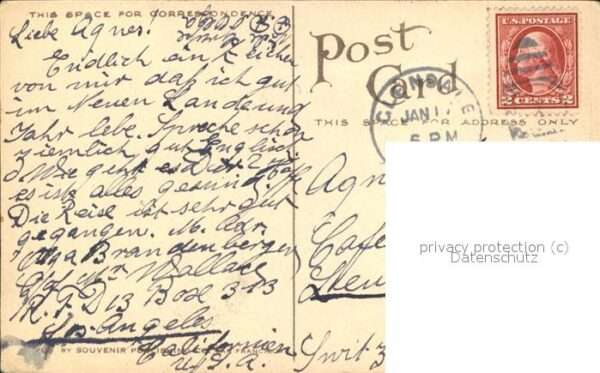 THIS SPACE FOR CORRESPONDENCE
Liebe Agnes!
Endlich ein Zeichen
von mir daß ich gut
im Neuen Lande und
Jahr lebe. Spreche schon
ziemlich gut Englisch
Wie geht es Dir
es ist alles gesund.
Die Reise ist sehr gut
gegangen. M. Adr.
Olga Brandenberger
c/of Wallace
R. F. D 13 Box 3-13
Los-Angeles
Californien.
U.S.A.
BY SOUVENIR
Post
Card
U.S. POSTAGE
2 CENTS 2
JAN 1
5 PM
THIS SPACE FOR ADDRESS ONLY
Agn
Cafe
Switz
privacy protection (c)
Datenschutz